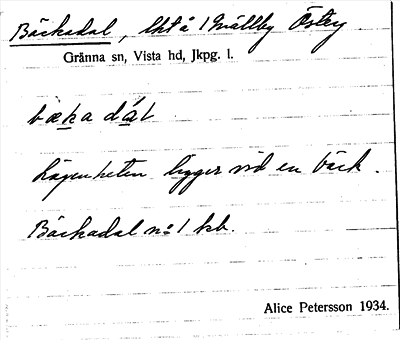 Bäckadal, lht å 1 Målby Österg.
Gränna sn, Vista hd, Jkpg. l.
bæka dal
Lägenheten ligger vid en bäck.
Bäckadal n:o 1 kb.
Alice Petersson 1934.